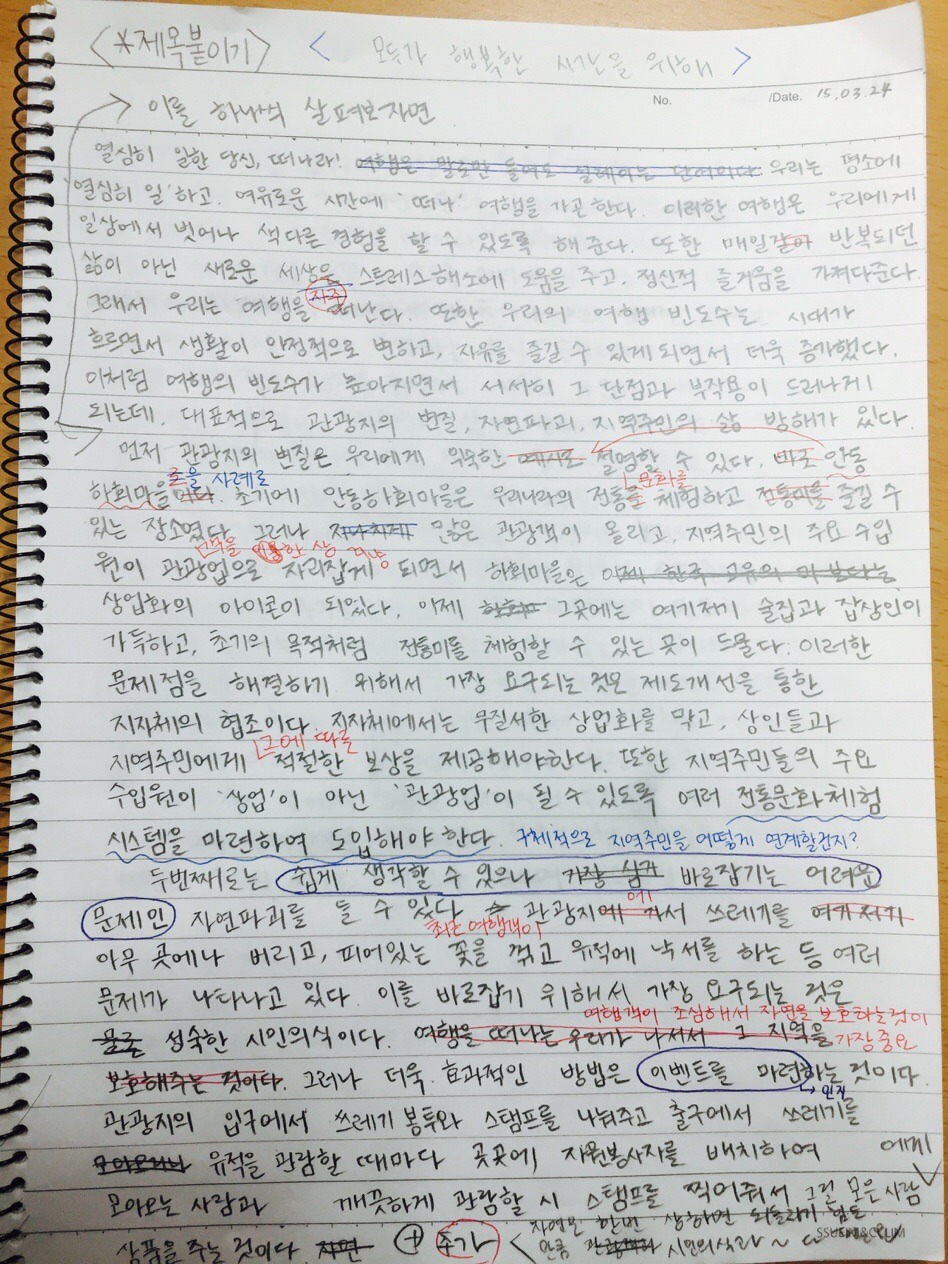 <*제목붙이기> < 모두가 행복한 시간을 위해 >
No. /Date. 15.03.24
이를 하나씩 살펴보자면
열심히 일한 당신, 떠나라! 여행은 말로만 들어도 설레이는 단어이다. 우리는 평소에
'열심히 일'하고, 여유로운 시간에 '떠나' 여행을 가곤한다. 이러한 여행은 우리에게
일상에서 벗어나 색다른 경험을 할 수 있도록 해준다. 또한 매일같이 반복되던
삶이 아닌 새로운 세상은 스트레스해소에 도움을 주고, 정신적 즐거움을 가져다준다.
자주
그래서 우리는 여행을 떠난다. 또한 우리의 여행 빈도수는 시대가
흐르면서 생활이 안정적으로 변하고, 자유를 즐길 수 있게되면서 더욱 증가했다.
이처럼 여행의 빈도수가 높아지면서 서서히 그 단점과 부작용이 드러나게
되는데, 대표적으로 관광지의 변질, 자연파괴, 지역주민의 삶 방해가 있다.
먼저 관광지의 변질은 우리에게 익숙한 예시로 설명할 수 있다. 바로 안동
을 사례로 문화를
하회마을이다. 초기에 안동하회마을은 우리나라의 전통을 체험하고 전통미를 즐길 수
있는 장소였다. 그러나 많은 관광객이 몰리고, 지역주민의 주요 수입
원이 관광업으로 자리잡게 되면서 하회마을은 이제 한국 고유의 미 보다는
상업화의 아이콘이 되었다. 이제 그곳에는 여기저기 술집과 잡상인이
가득하고, 초기의 목적처럼 전통미를 체험할 수 있는 곳이 드물다. 이러한
문제점을 해결하기 위해서 가장 요구되는 것은 제도개선을 통한
지자체의 협조이다. 지자체에서는 무질서한 상업화를 막고, 상인들과
그에 따른
지역주민에게 적절한 보상을 제공해야한다. 또한 지역주민들의 주요
수입원이 '상업'이 아닌 '관광업'이 될 수 있도록 여러 전통문화체험
시스템을 마련하여 도입해야 한다. 구체적으로 지역주민을 어떻게 연계할건지?
두번째로는 쉽게 생각할 수 있으나 가장 쉽게 바로잡기는 어려운
에
문제인 자연파괴를 들 수 있다. 관광지에 가서 쓰레기를 여기저기
최근 여행객이
아무 곳에나 버리고, 피어있는 꽃을 꺾고 유적에 낙서를 하는 등 여러
문제가 나타나고 있다. 이를 바로잡기 위해서 가장 요구되는 것은
여행객이 조심해서 자연을 보호하는것이
성숙한 시민의식이다. 여행을 떠나는 우리가 나서서 그 지역을 가장 중요
보호해주는 것이다. 그러나 더욱 효과적인 방법은 이벤트를 마련하는 것이다.
관광지의 입구에서 쓰레기봉투와 스탬프를 나눠주고 출구에서 쓰레기를
유적을 관람할 때마다 곳곳에 자원봉사자를 배치하여 에게
모아오는 사람과 깨끗하게 관람할 시 스탬프를 찍어줘서 그걸 모은 사람
상품을 주는 것이다. 자연 + 추가 < 자연은 한번 상하면 되돌리기 힘든
만큼 시민의식과 ~